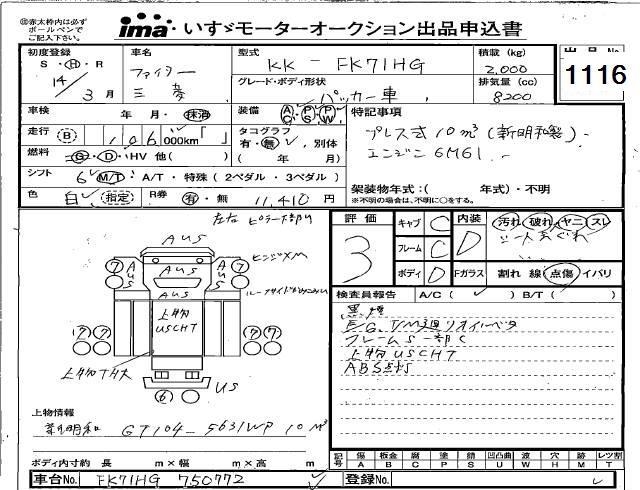 ㊟赤太枠内は必ず
ボールペンで
ご記入下さい。
ima いすゞモーターオークション出品申込書
初度登録 車名 型式 積載(kg) 出品No.
S・H・R ファイター KK-FK71HG 2,000 1116
14/3月 三菱 グレード・ボディ形状 排気量(cc)
パッカー車 8200
車検 年・月・抹消 装備 AC PS PW 特記事項
走行 B 106 000km「 」 タコグラフ プレス式10m³(新明和製)
有・無・別体 エンジン6M61
燃料 G・D・HV 他( ) ( 年 月)
シフト 6 M/T・A/T・特殊(2ペダル・3ペダル) 架装物年式:( 年式)・不明
※不明の場合は、不明に○をする。
色 白 指定 R券 有・無 11,410 円
左右ピラー部サ
評価 3 キャブ C 内装 D 汚れ 破れ ヤニ スレ
フレーム C シートあぐれ
ボディ D Fガラス 割れ 線 点傷 イバリ
AUS
AUS
AUS
AUS
AUS
ヒンジXM
上物
USCHT
上物T大
US
検査員報告 A/C( ) B/T( )
黒煙
E/G、T/M廻リオイルベタ
フレームS一部C
上物USCHT
ABS点灯
上物情報
新明和 GT104-5631WP 10M³
ボディ内寸約 長 m×幅 m×高 m
記号 傷A 板金B 腐C 塗P 錆S 凹凸曲U 波W 穴H 跡M レツ割T
車台No. FK71HG 750772 登録No.